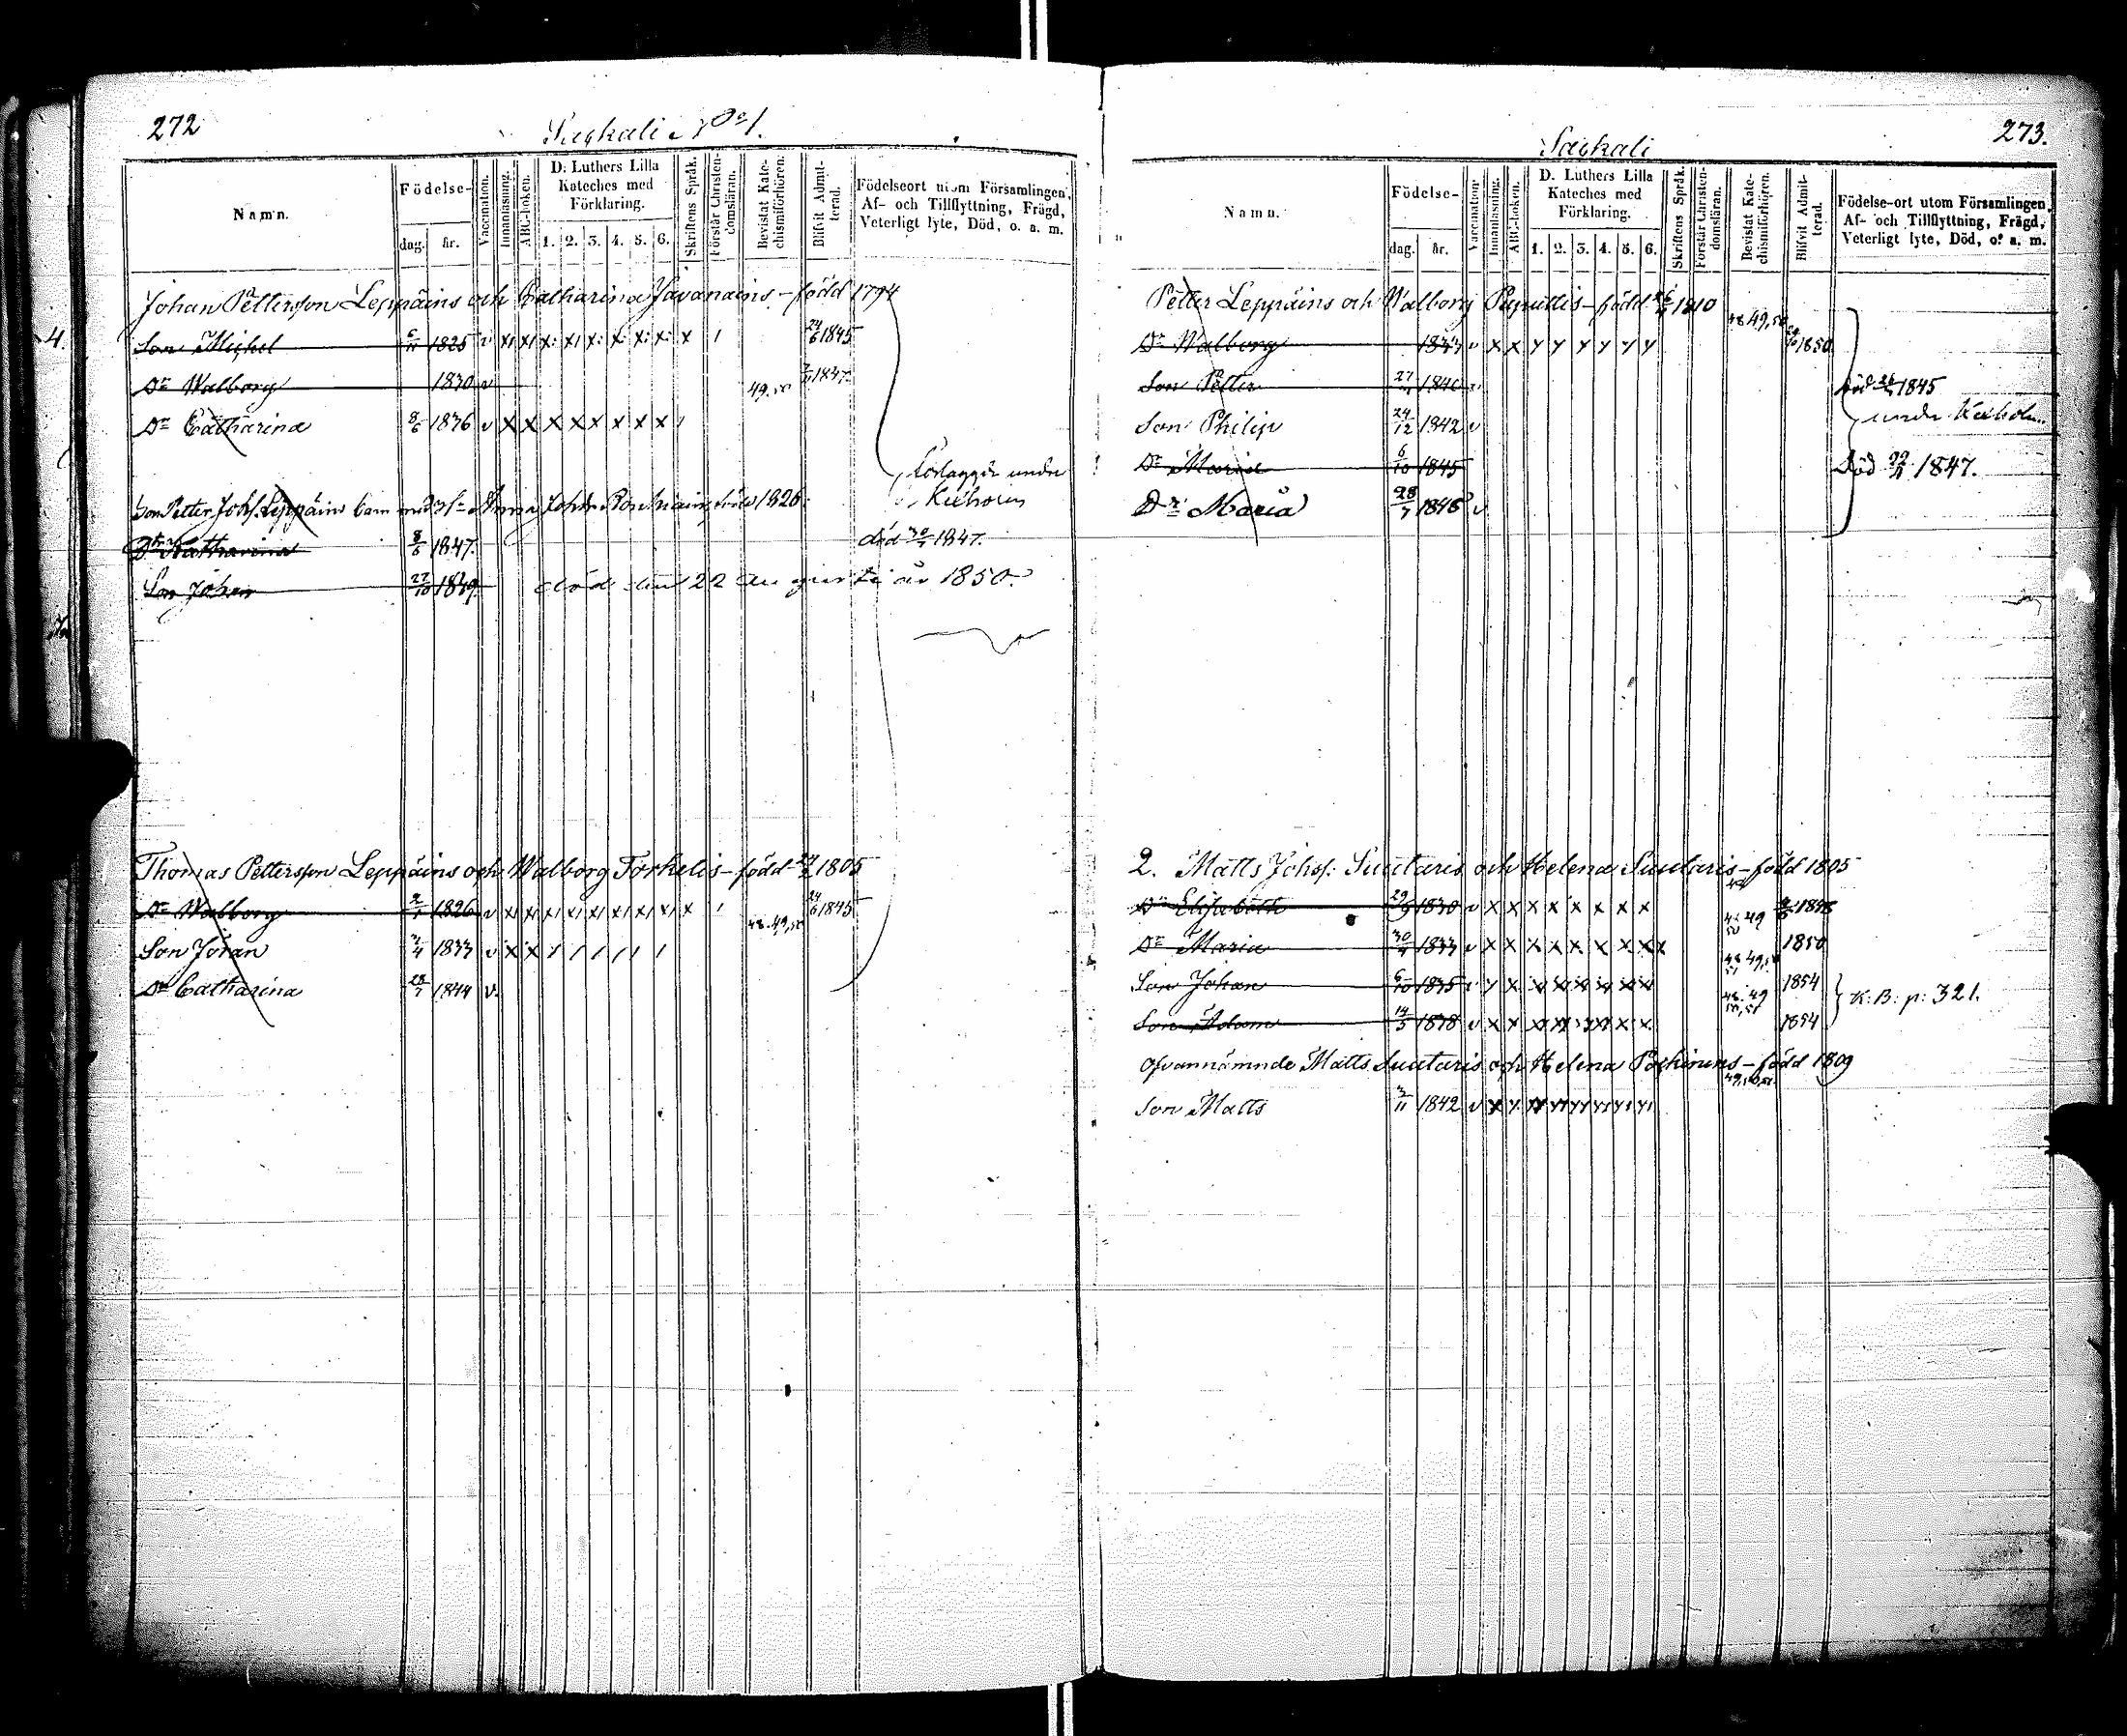 272
Saskali No 1.
Namn.
Födelse-
dag.
år.
Vaccination.
Innanläsning.
ABC-boken.
D: Luthers Lilla
Kateches med
Förklaring.
1. 2. 3. 4. 5. 6.
Skriftens Språk.
Förstår Christen-
domsläran.
Bevistat Kate-
chismiförhören.
Blifvit Admit-
terad.
Födelseort utom Församlingen,
Af- och Tillflyttning, Frägd,
Veterligt lyte, Död, o. a. m.
Johan Pettersson Leppäins och Catharina Javanains – född 1794
Son Michel 6/11 1825 v x/ x/ x: x/ x: x: x: x: x / 24/6 1845
Dr Walborg 1830 v 49.50 1847.
Dr Catharina 8/6 1836 v x x x x x x x x /
under
Kexholm
Son Petter Johs. Leppäins barn med Anna född 1826.
Dr Katharina 8/6 1847. död 1847.
Son Johan 22/10 1849. död den 22 augusti år 1850.
Thomas Pettersson Leppäins och Walborg Torkelis – född 1805
Dr Walborg 2/1 1826 v x/ x/ x/ x/ x/ x/ x/ x/ x / 48.49,50 24/6 1845
Son Jöran 3/4 1833 v x x / / / / / /
Dr Catharina 28/7 1844 v.
273.
Saskali
Namn.
Födelse-
dag.
år.
Vaccination.
Innanläsning.
ABC-boken.
D. Luthers Lilla
Kateches med
Förklaring.
1. 2. 3. 4. 5. 6.
Skriftens Språk.
Förstår Christen-
domsläran.
Bevistat Kate-
chismiförhören.
Blifvit Admit-
terad.
Födelse-ort utom Församlingen,
Af- och Tillflyttning, Frägd,
Veterligt lyte, Död, o. a. m.
Petter Leppäins och Walborg – född 1810
Dr Walborg 1833 v x x y y y y y y 48 49,50 1850
Son Petter 1840 v död 1845
Son Philip 24/12 1842 v under Kexholm
Dr Maria 6/10 1845 Död 1847.
Dr Maria 28/7 1848 v
2. Matts Johss: Suutaris och Helena Suutaris – född 1805
Dr Elisabeth 29/9 1830 v x x x x x x x x 48 49 50 1848
Dr Maria 30/4 1833 v x x x x x x x x x 48 49,50 51 1850
Son Johan 6/10 1835 v y x x x x x x x 48.49 50,51 1854
K: B: p: 321.
Son Adam 14/5 1838 v x x x x x x x x 1854
Ofvannämnde Matts Suutaris och Helena Poskinens – född 1809
Son Matts 3/11 1842 v x y